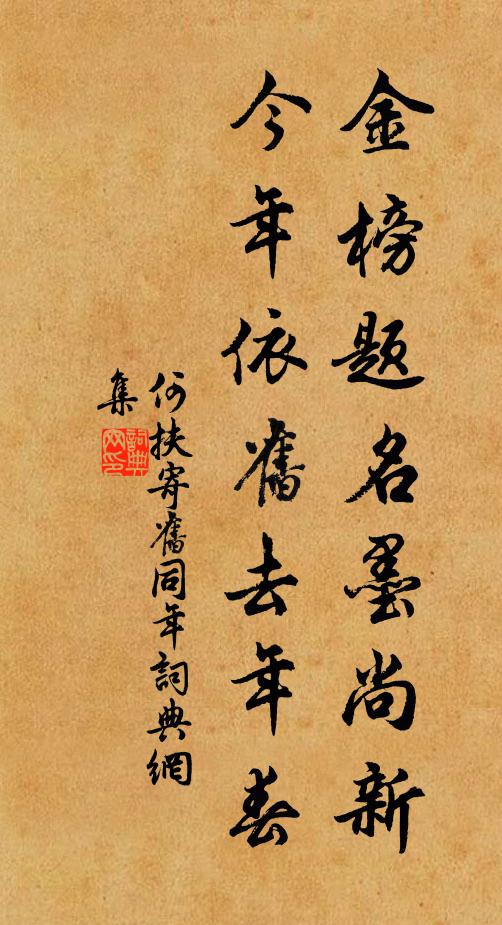 金榜題名墨尚新
今年依舊去年春
何扶寄舊同年詞典網
集
詞典
网印